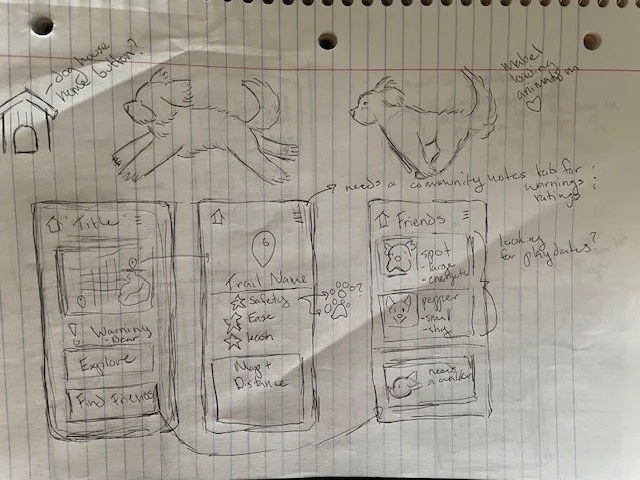 dog house
home button?
mabel
loading
animation
needs a community notes tab for
warnings
ratings
Title
Warning
- Bear
Explore
Find Friends
Trail Name
Safety
Ease
?
Map +
Distance
Friends
Spot
- large
- energetic
pepper
- small
- shy
needs
a walker
looking
for playdates?